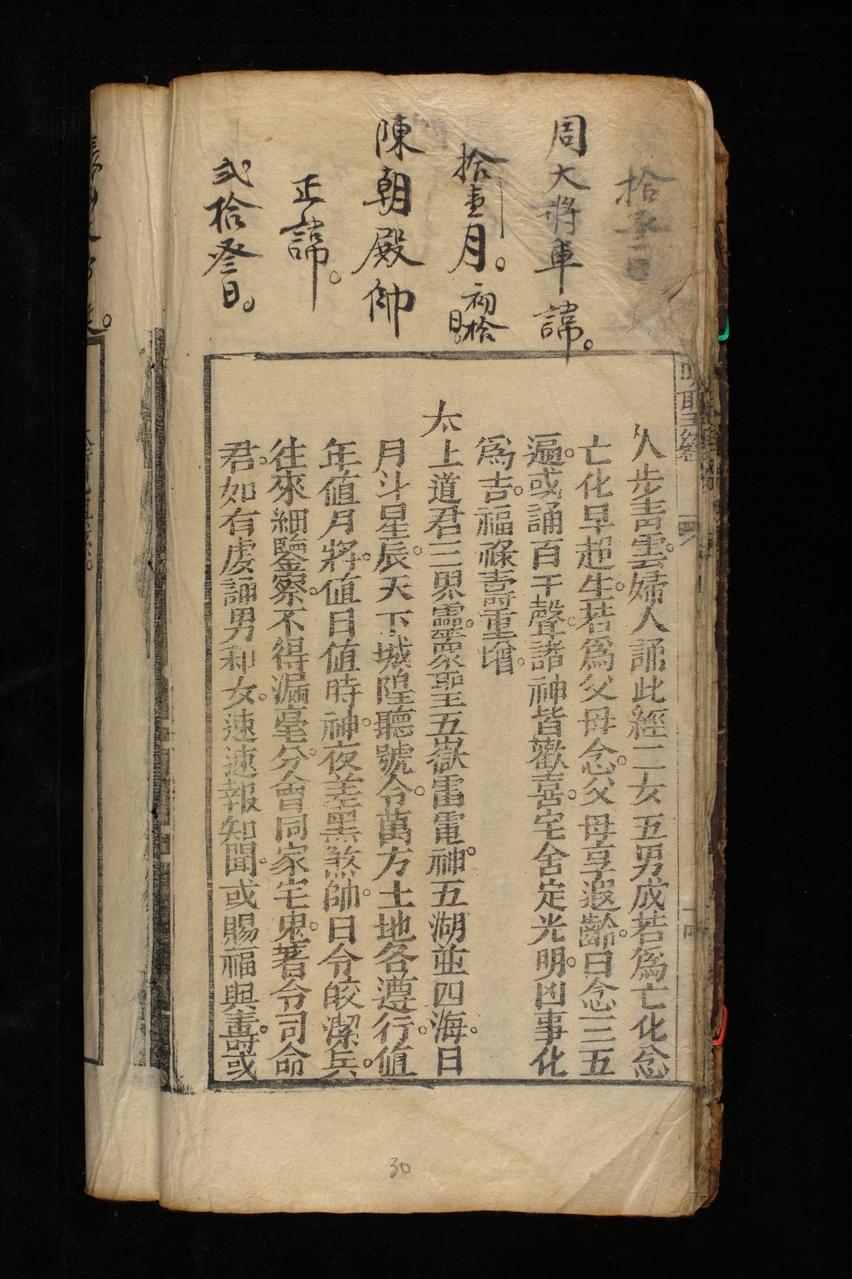 拾
周大將軍諱。
拾壹月。初拾日。
陳朝殿帥
正諱。
弍拾叄日。
明聖經
久步青雲。婦人誦此經二女五男成若爲亡化念
亡化早超生。若爲父母念。父母享遐齡。日念三五
遍。或誦百千聲。諸神皆歡喜。宅舍定光明。凶事化
爲吉。福祿壽重增。
太上道君三界靈。眾聖五嶽雷電神。五湖並四海。日
月斗星辰。天下城隍聽號令。萬方土地各遵行。值
年值月將。值日值時神。夜差黑煞帥。日令皎潔兵。
往來細鑒察。不得漏毫分。會同家宅鬼。著令司命
君。如有虔誦男和女。速速報知聞。或賜福與壽。或
30